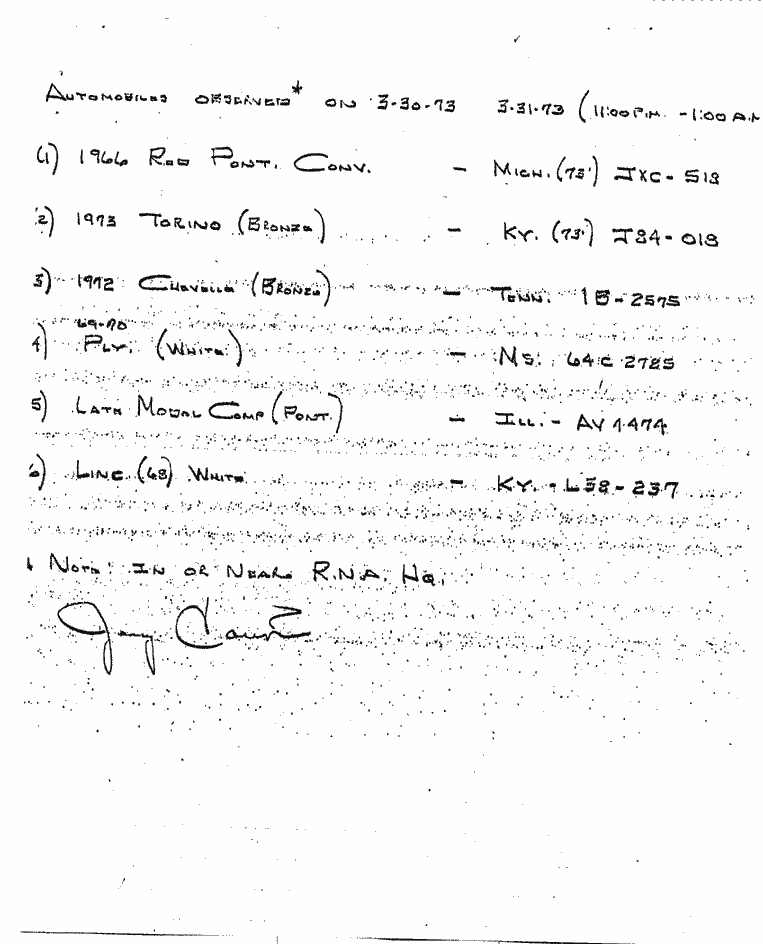 AUTOMOBILES OBSERVED* ON 3-30-73 3-31-73 (11:00 P.M. - 1:00 A.M
(1) 1966 RED PONT. CONV. - MICH. (73') JXC-518
2) 1973 TORINO (BRONZE) - KY. (73') J84-018
3) 1972 CHEVELLE (BRONZE) - TENN. 1B-2575
69-70
4) PLY. (WHITE) - MS. 64C 2785
5) LATE MODEL COMP (PONT.) - ILL. - AV 7474
6) LINC. (68) WHITE - KY. - L38-237
* NOTE: IN OR NEAR R.N.A. HQ.
Jerry